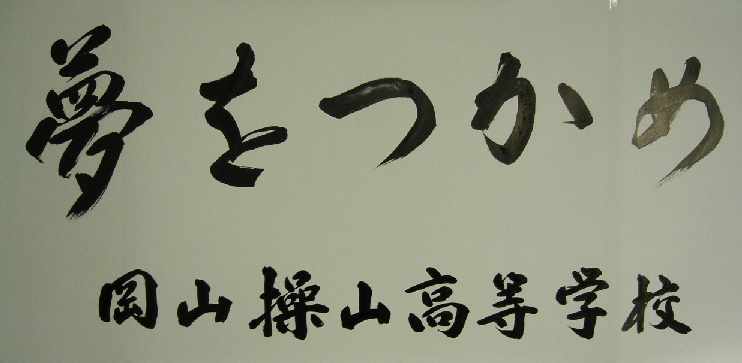 夢をつかめ
岡山操山高等学校